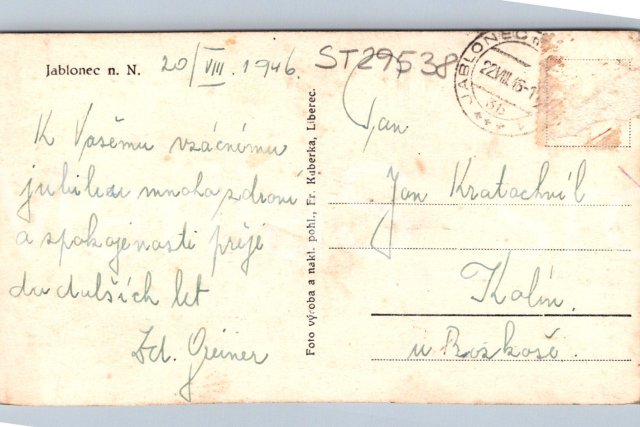 Jablonec n. N.
20/VIII. 1946.
ST29538
JABLONEC
22.VIII.46-1
K Vašemu vzácnému
jubileu mnoho zdraví
a spokojenosti přeje
do dalších let
Zd. Greiner
Foto výroba a nakl. pohl., Fr. Kuberka, Liberec.
Pan
Jan Kratochvíl
Kolín.
u Rozkoše.